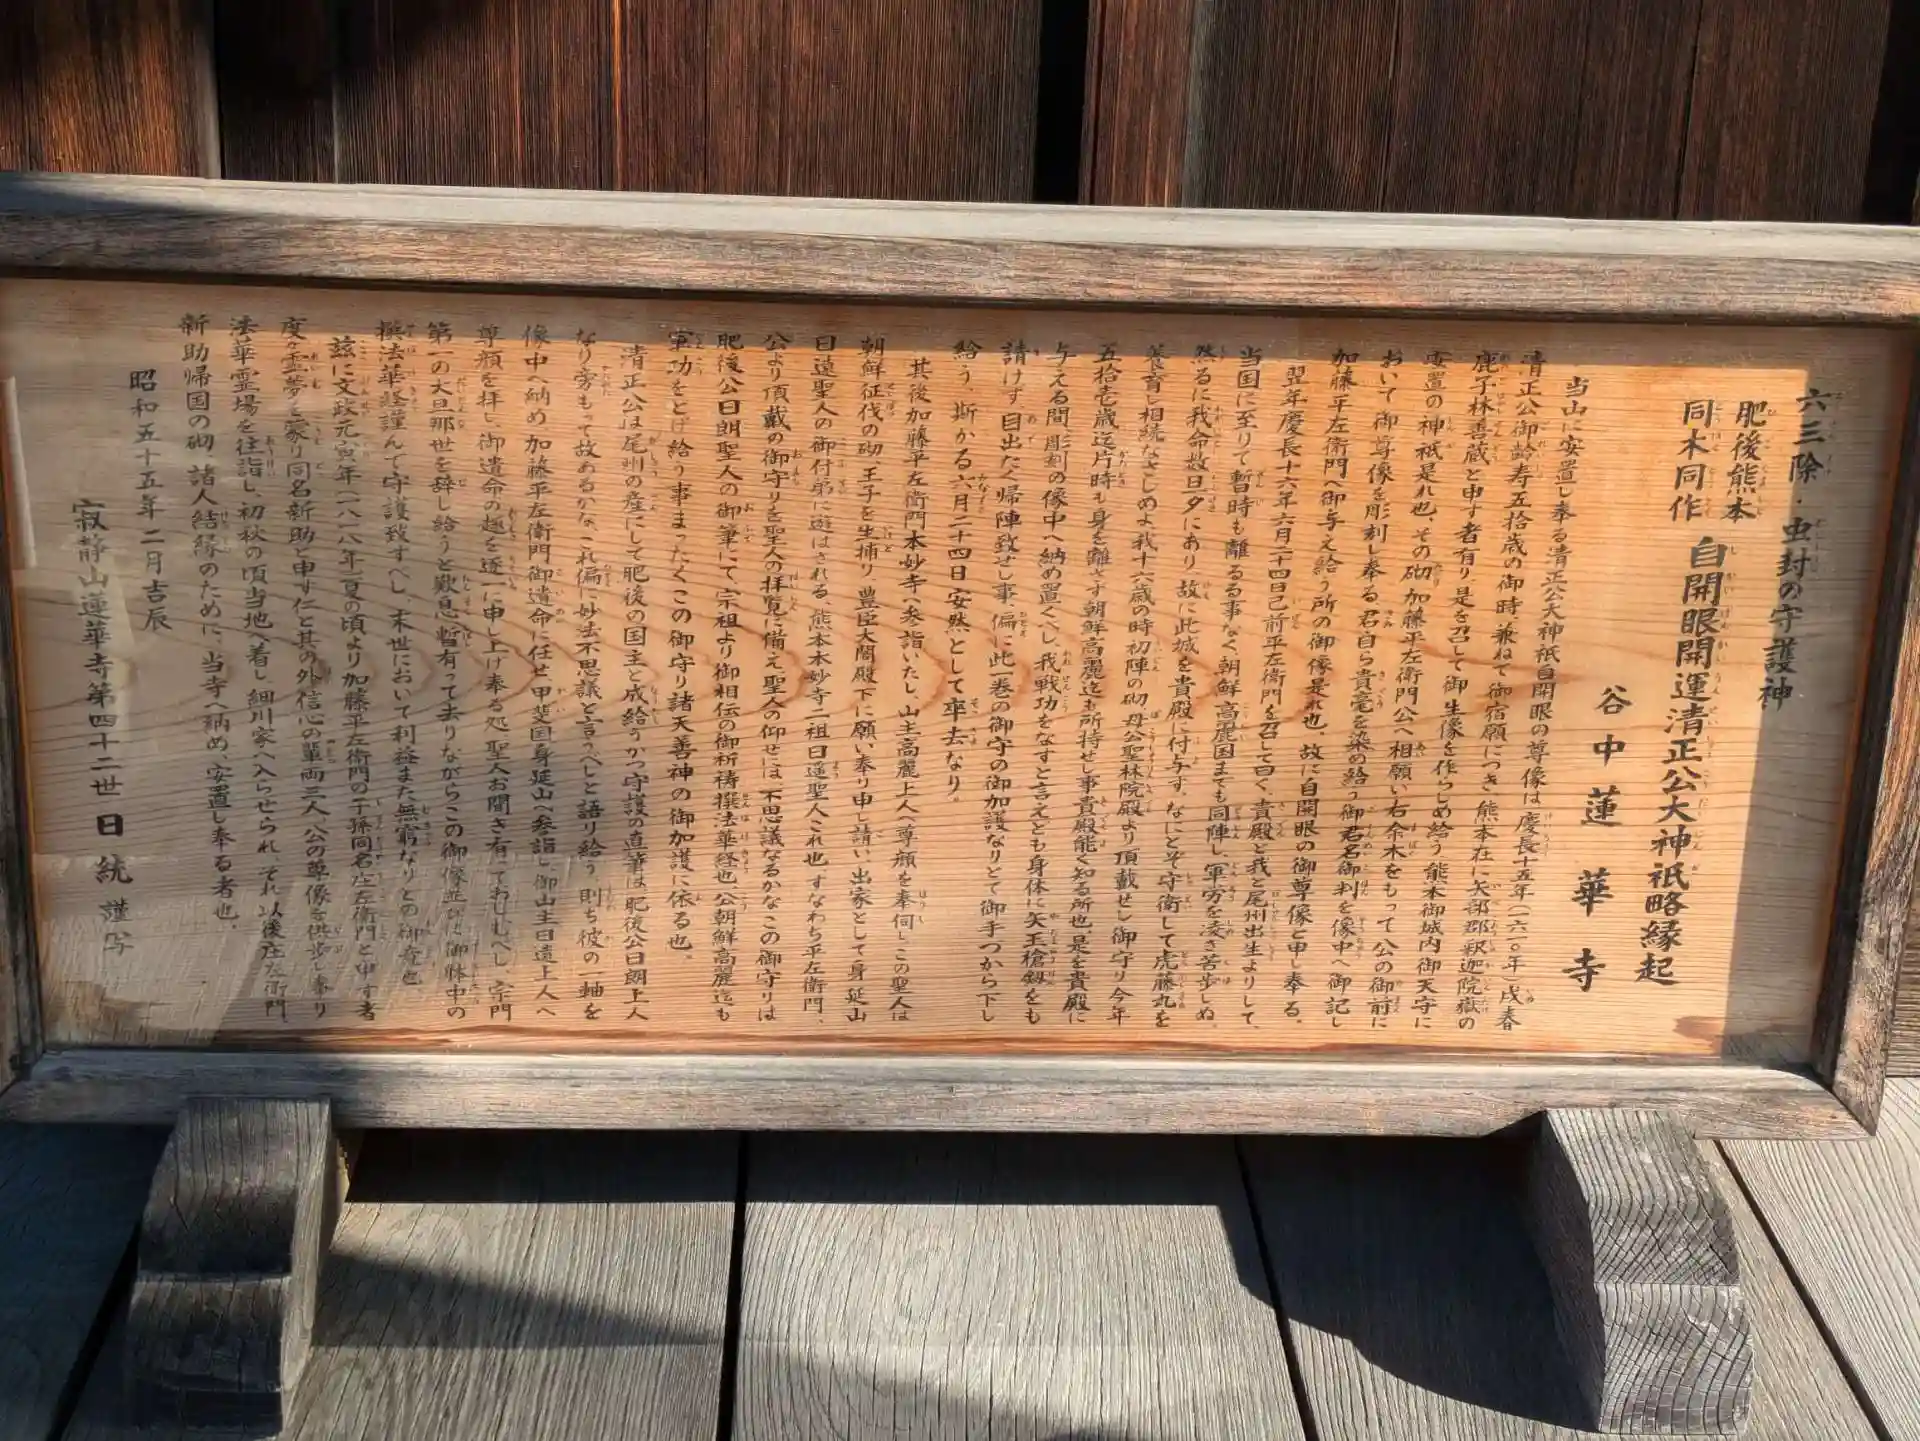 六三除・虫封の守護神
肥後熊本
同木同作
自開眼開運清正公大神祇略縁起
谷中蓮華寺
当山に安置し奉る清正公大神祇自開眼の尊像は慶長十五年(一六一〇年)戌春
清正公御齢寿五拾歳の御時、兼ねて御宿願につき熊本在に矢部郡釈迦院嶽の
鹿子林善蔵と申す者有り、是を召して御生像を作らしめ給う、熊本御城内御天守に
安置の神祇是れ也、その砌加藤平左衛門公へ相願い右余木をもって公の御前に
おいて御尊像を彫刻し奉る君自ら貴毫を染め給う御君名御判を像中へ御記し
加藤平左衛門へ御与え給う所の御像是れ也、故に自開眼の御尊像と申し奉る。
翌年慶長十六年六月二十四日己前平左衛門を召して曰く、貴殿と我と尾州出生よりして、
当国に至りて暫時も離るる事なく朝鮮高麗国までも同陣し、軍労を凌ぎ苦歩しぬ、
然るに我命数旦夕にあり、故に此城を貴殿に付与す、なにとぞ守衛して虎藤丸を
養育し相続なさしめよ我十六歳の時初陣の砌母公聖林院殿より頂戴せし御守り今年
五拾壱歳迄片時も身を離さず朝鮮高麗迄も所持せし事貴殿能く知る所也、是を貴殿に
与える間彫刻の像中へ納め置くべし、我戦功をなすと言えども身体に矢玉槍剱をも
請けず目出たく帰陣致せし事、偏に此一巻の御守の御加護なりとて御手づから下し
給う、斯かる六月二十四日安然として卒去なり。
其後加藤平左衛門本妙寺へ参詣いたし、山主高麗上人へ尊顔を奉伺し、この聖人は
朝鮮征伐の砌、王子を生捕り、豊臣大閤殿下に願い奉り申し請い、出家として身延山
日遠聖人の御付弟に遊はされる、熊本本妙寺二祖日遥聖人これ也、すなわち平左衛門、
公より頂戴の御守りを聖人の拝覧に備え聖人の仰せには、不思議なるかなこの御守りは
肥後公日朗聖人の御筆にて、宗祖より御相伝の御祈祷撰法華経也、公朝鮮高麗迄も
軍功をとげ給う事まったくこの御守り諸天善神の御加護に依る也。
清正公は尾州の産にして肥後の国主と成給うかつ守護の直筆は、肥後公日朗上人
なり旁もって故あるかな、これ偏に妙法不思議と言うべしと語り給う、則ち彼の一軸を
像中へ納め、加藤平左衛門御遺命に任せ、甲斐国身延山へ参詣し、御山主日遠上人へ
尊顔を拝し、御遺命の趣を逐一に申し上げ奉る処、聖人お聞き有っておしむべし、宗門
第一の大旦那世を辞し給うと歎息暫有って去りながらこの御像並びに御躰中の
撰法華経謹んで守護致すべし、末世において利益また無窮なりとの御意也、
茲に文政元寅年(一八一八年)夏の頃より加藤平左衛門の子孫同名庄左衛門と申す者
度々霊夢を蒙り同名新助と申す仁と其の外信心の輩両三人、公の尊像を供歩し奉り
法華霊場を往詣し、初秋の頃当地へ着し、細川家へ入らせられ、それ以後庄左衛門、
新助帰国の砌、諸人結縁のために、当寺へ納め、安置し奉る者也。
昭和五十五年二月吉辰
寂静山蓮華寺第四十二世日統謹写